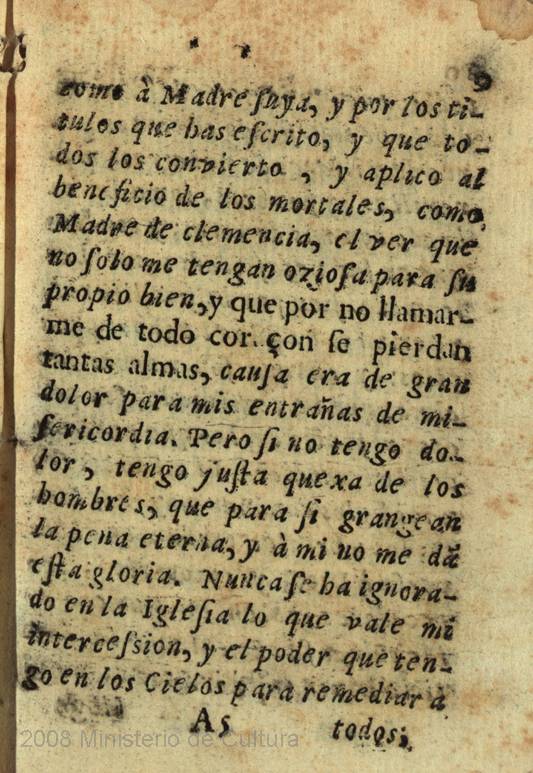 9
como à Madre ſuya, y por los ti-
tulos que has eſcrito, y que to-
dos los convierto, y aplico al
beneficio de los mortales, como,
Madre de clemencia, el ver que
no ſolo me tengan ozioſa para ſu
propio bien, y que por no llamar-
me de todo cor. çon ſe pierdan
tantas almas, cauſa era de gran
dolor para mis entrañas de mi-
ſericordia. Pero ſi no tengo do-
lor, tengo juſta quexa de los
hombres, que para ſi grangean
la pena eterna, y à mi no me dã
eſta gloria. Nunca ſe ha ignora-
do en la Igleſia lo que vale mi
interceſsion, y el poder que ten-
go en los Cielos para remediar à
A5 todos;
2008 Ministerio de Cultura